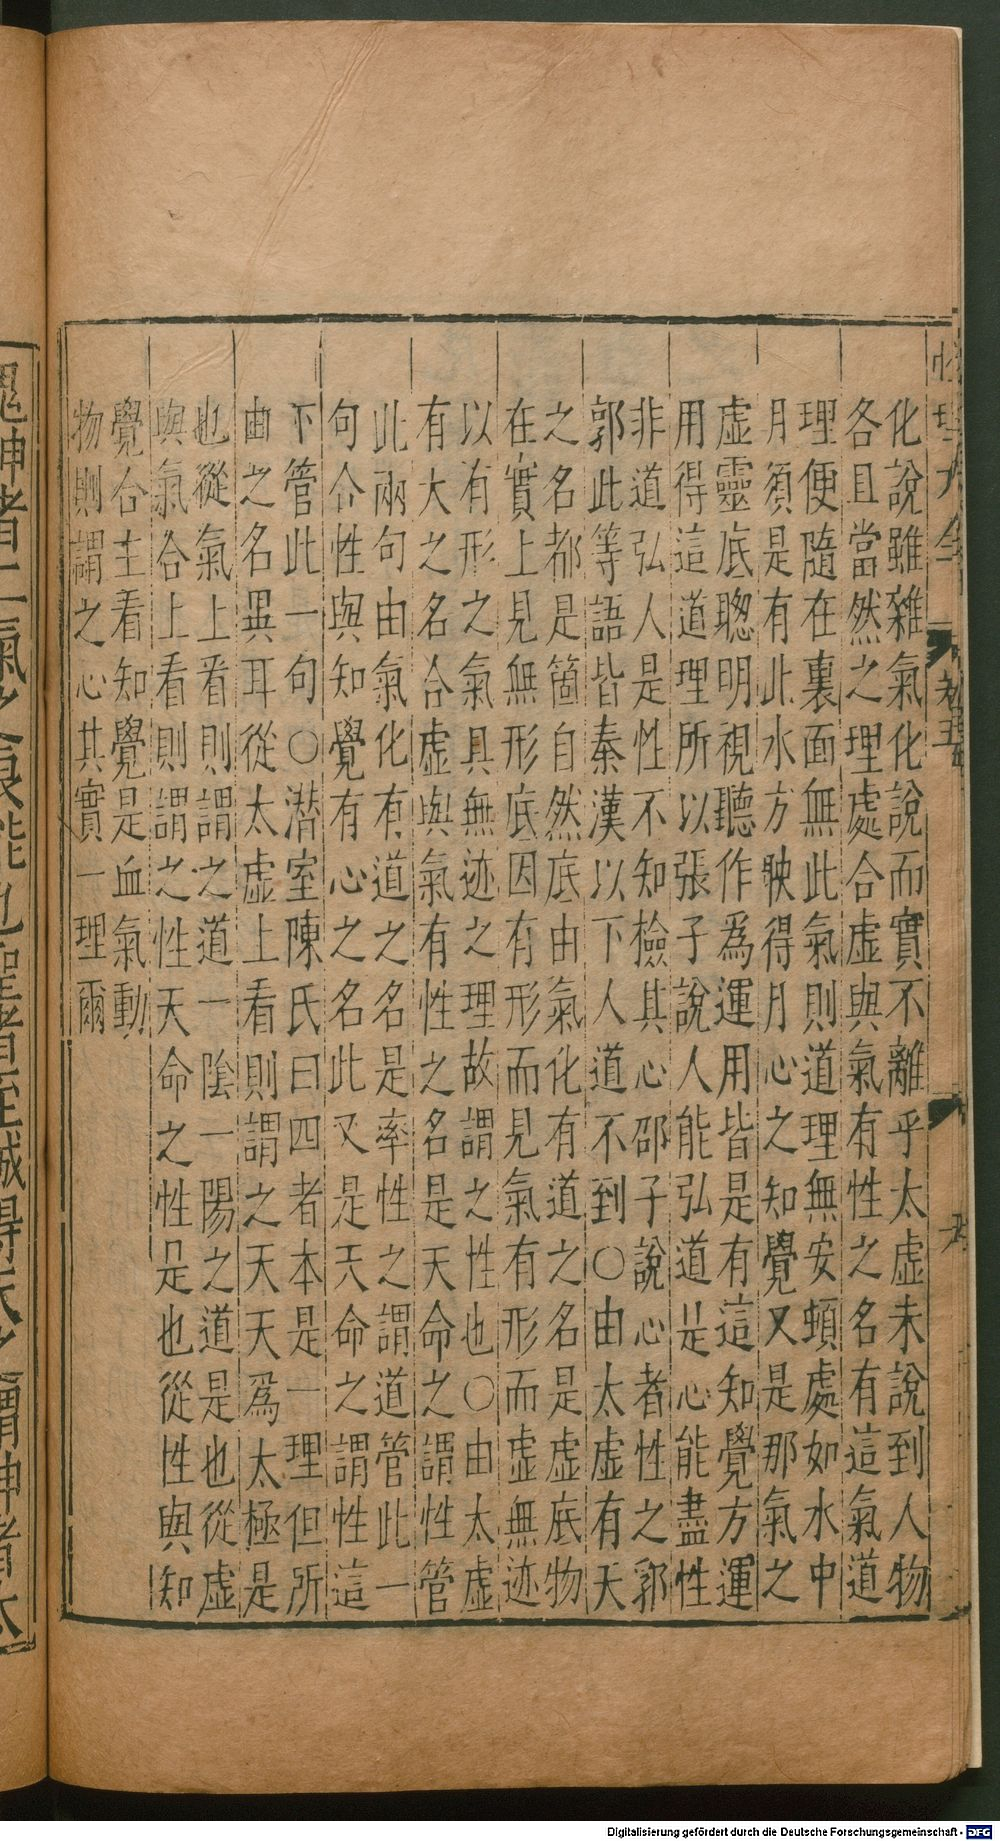 化說雖雜氣化說而實不離乎太虛未說到人物
各且當然之理處合虛與氣有性之名有這氣道
理便隨在裏面無此氣則道理無安頓處如水中
月須是有此水方映得月心之知覺又是那氣之
虛靈底聰明視聽作爲運用皆是有這知覺方運
用得這道理所以張子說人能弘道是心能盡性
非道弘人是性不知檢其心邵子說心者性之郛
郭此等語皆秦漢以下人道不到○由太虛有天
之名都是箇自然底由氣化有道之名是虛底物
在實上見無形底因有形而見氣有形而虛無迹
以有形之氣具無迹之理故謂之性也○由太虛
有大之名合虛與氣有性之名是天命之謂性管
此兩句由氣化有道之名是率性之謂道管此一
句合性與知覺有心之名此又是天命之謂性這
下管此一句○潛室陳氏曰四者本是一理但所
由之名異耳從太虛上看則謂之天天爲太極是
也從氣上看則謂之道一陰一陽之道是也從虛
與氣合上看則謂之性天命之性是也從性與知
覺合上看知覺是血氣動
物則謂之心其實一理爾
性理大全
卷五
鬼神者二氣之良能也聖者至誠得天之謂神者太
Digitalisierung gefördert durch die Deutsche Forschungsgemeinschaft - DFG